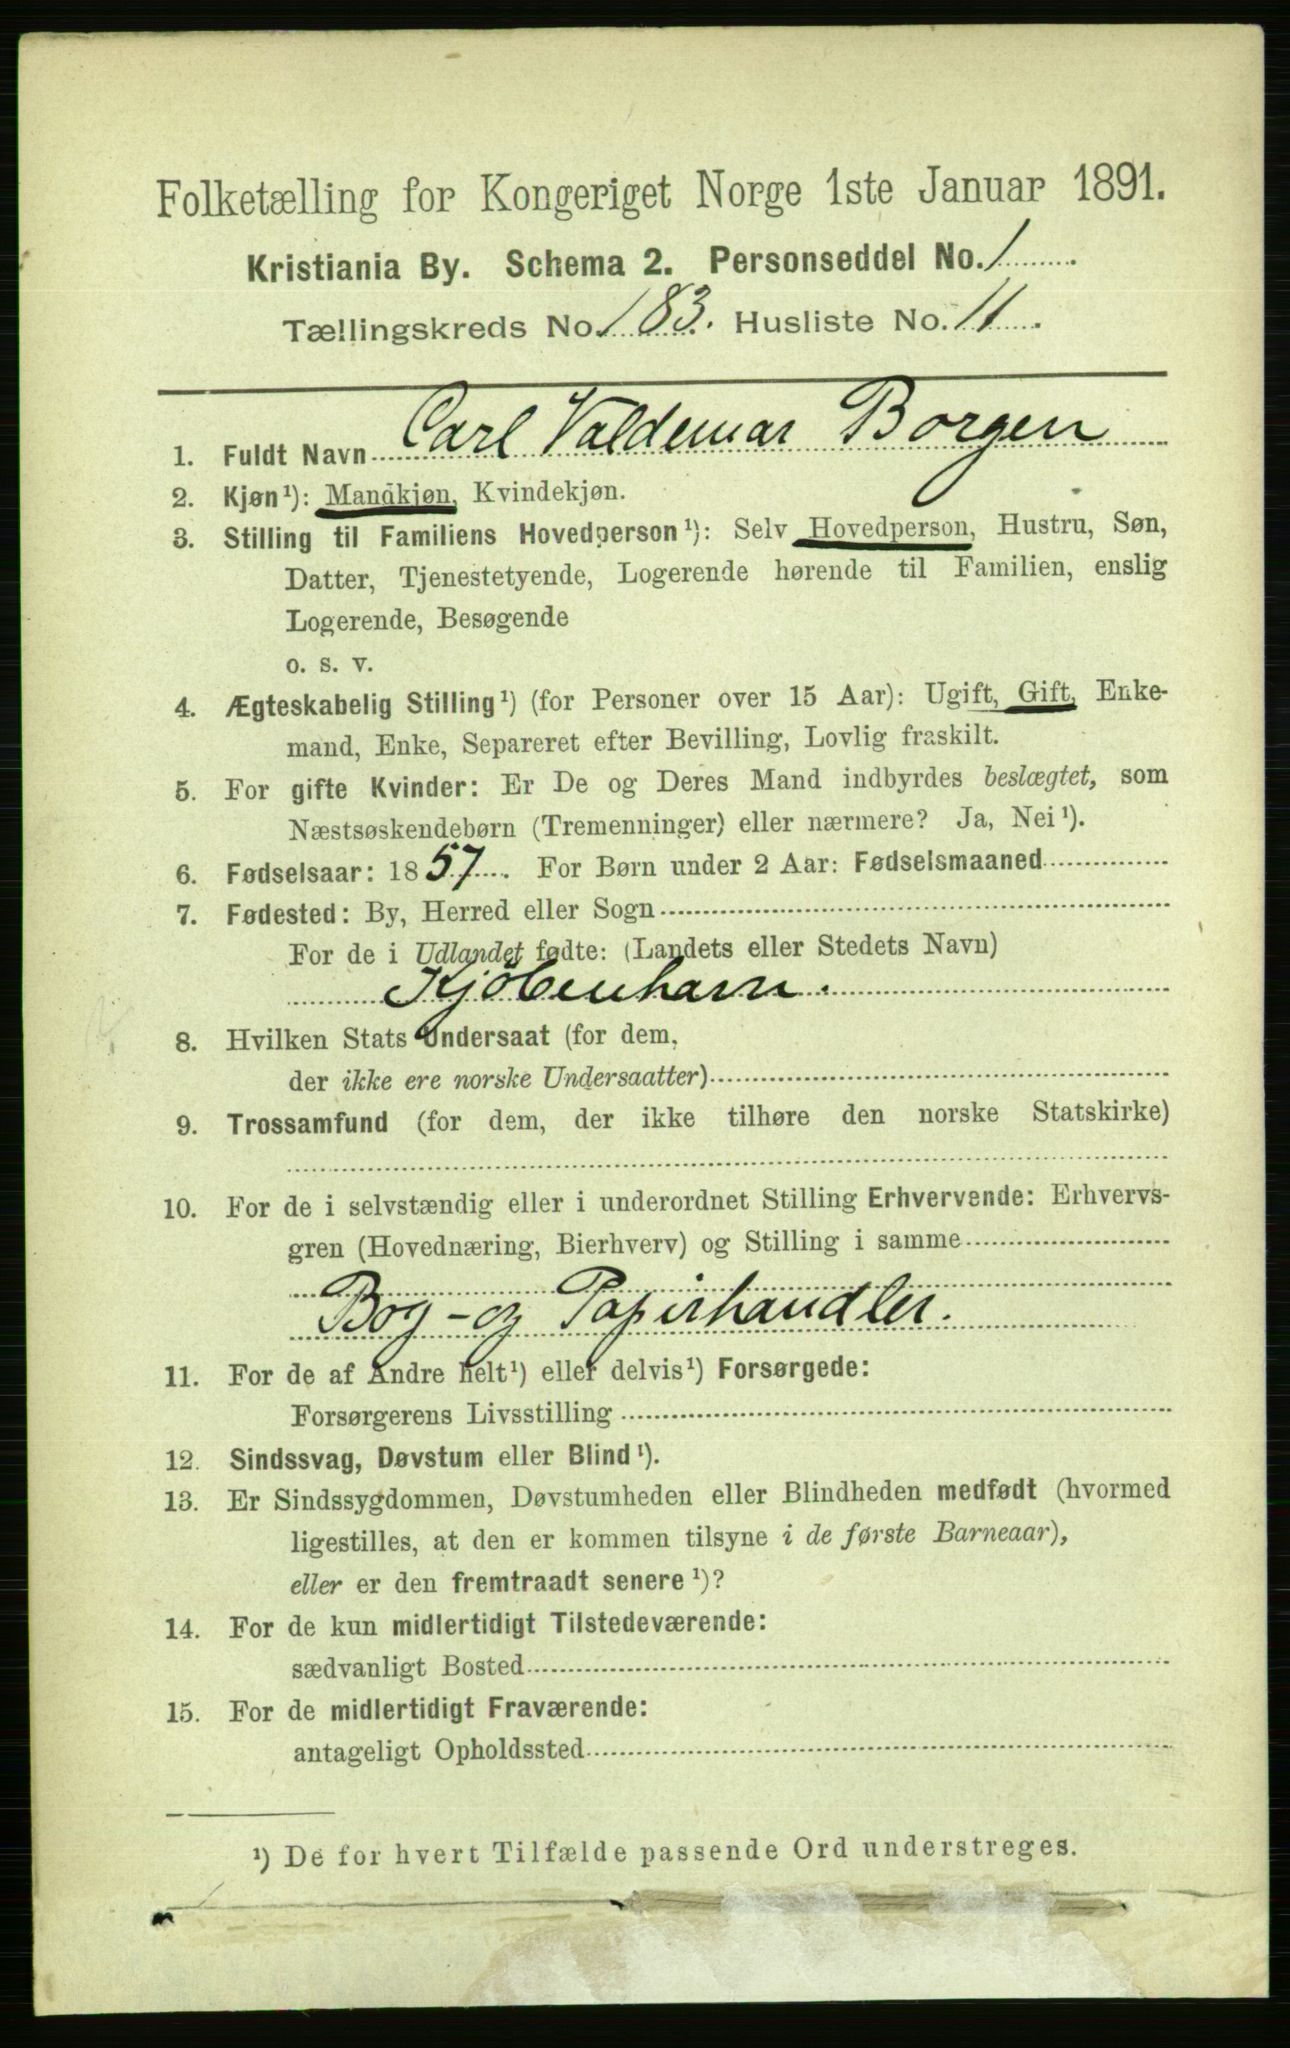 Folketælling for Kongeriget Norge 1ste Januar 1891.
Kristiania By. Schema 2. Personseddel No. 1
Tællingskreds No. 183. Husliste No. 11.
1. Fuldt Navn Carl Valdemar Borgen
2. Kjøn¹): Mandkjøn, Kvindekjøn.
3. Stilling til Familiens Hovedperson¹): Selv Hovedperson, Hustru, Søn,
Datter, Tjenestetyende, Logerende hørende til Familien, enslig
Logerende, Besøgende
o. s. v.
4. Ægteskabelig Stilling¹) (for Personer over 15 Aar): Ugift, Gift, Enke-
mand, Enke, Separeret efter Bevilling, Lovlig fraskilt.
5. For gifte Kvinder: Er De og Deres Mand indbyrdes beslægtet, som
Næstsøskendebørn (Tremenninger) eller nærmere? Ja, Nei¹).
6. Fødselsaar: 1857. For Børn under 2 Aar: Fødselsmaaned
7. Fødested: By, Herred eller Sogn
For de i Udlandet fødte: (Landets eller Stedets Navn)
Kjöbenhavn.
8. Hvilken Stats Undersaat (for dem,
der ikke ere norske Undersaatter)
9. Trossamfund (for dem, der ikke tilhøre den norske Statskirke)
10. For de i selvstændig eller i underordnet Stilling Erhvervende: Erhvervs-
gren (Hovednæring, Bierhverv) og Stilling i samme
Bog- og Papirhandler.
11. For de af Andre helt¹) eller delvis¹) Forsørgede:
Forsørgerens Livsstilling
12. Sindssvag, Døvstum eller Blind¹).
13. Er Sindssygdommen, Døvstumheden eller Blindheden medfødt (hvormed
ligestilles, at den er kommen tilsyne i de første Barneaar),
eller er den fremtraadt senere¹)?
14. For de kun midlertidigt Tilstedeværende:
sædvanligt Bosted
15. For de midlertidigt Fraværende:
antageligt Opholdssted
¹) De for hvert Tilfælde passende Ord understreges.